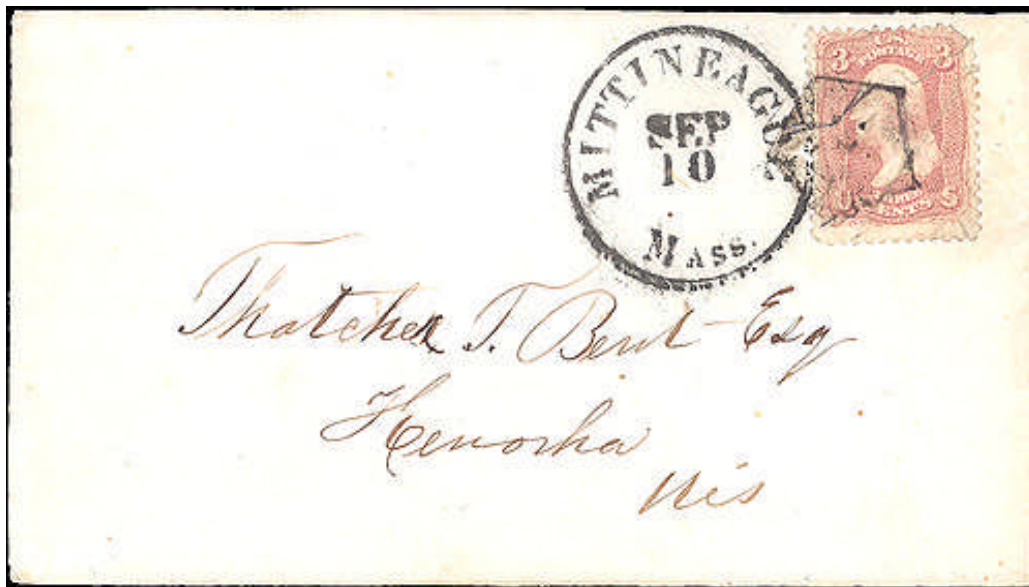 MITTINEAGUE
SEP
10
MASS.
U.S.
POSTAGE
3 3
THREE
CENTS
Thatcher T. Bent Esq
Kenosha
Wis